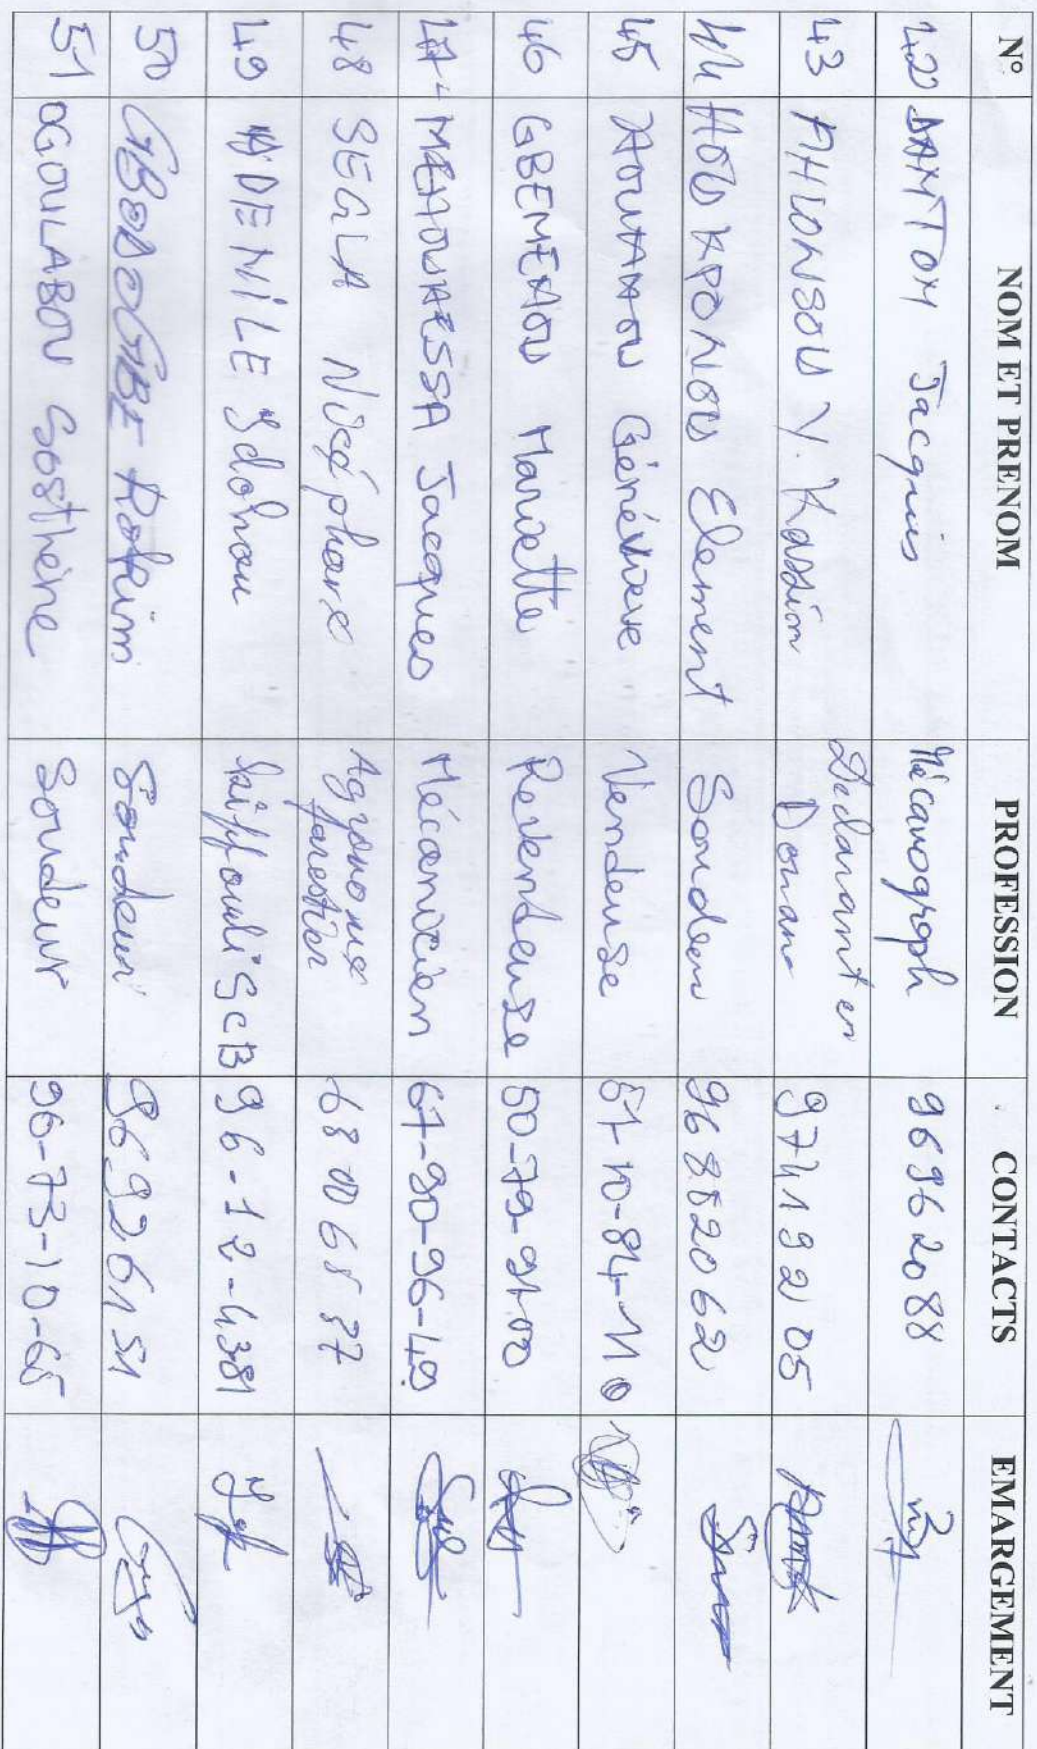 N° NOM ET PRENOM PROFESSION CONTACTS EMARGEMENT
42 DAMTON Jacquis Mécanograph 96962088
43 AHLONSOU Y. Kassim Declarant en
Douane 97419205
44 HOUKPONOU Element Soudeur 96882062
45 AOUANOU Généviève Vendeuse 61-10-84-110
46 GBEMENOU Mariette Revendeuse
47- MEHOUAESSA Jacques Mécanicien 67-90-96-49
48 SEGLA Nicéphore Agronome
forestier 68006537
49 ADENILE Idohou SCB 96-12-4381
50 GBEDOGBE Rafeim Soudeur 96926151
51 OGOULABOU Sosthène Soudeur 96-73-10-65